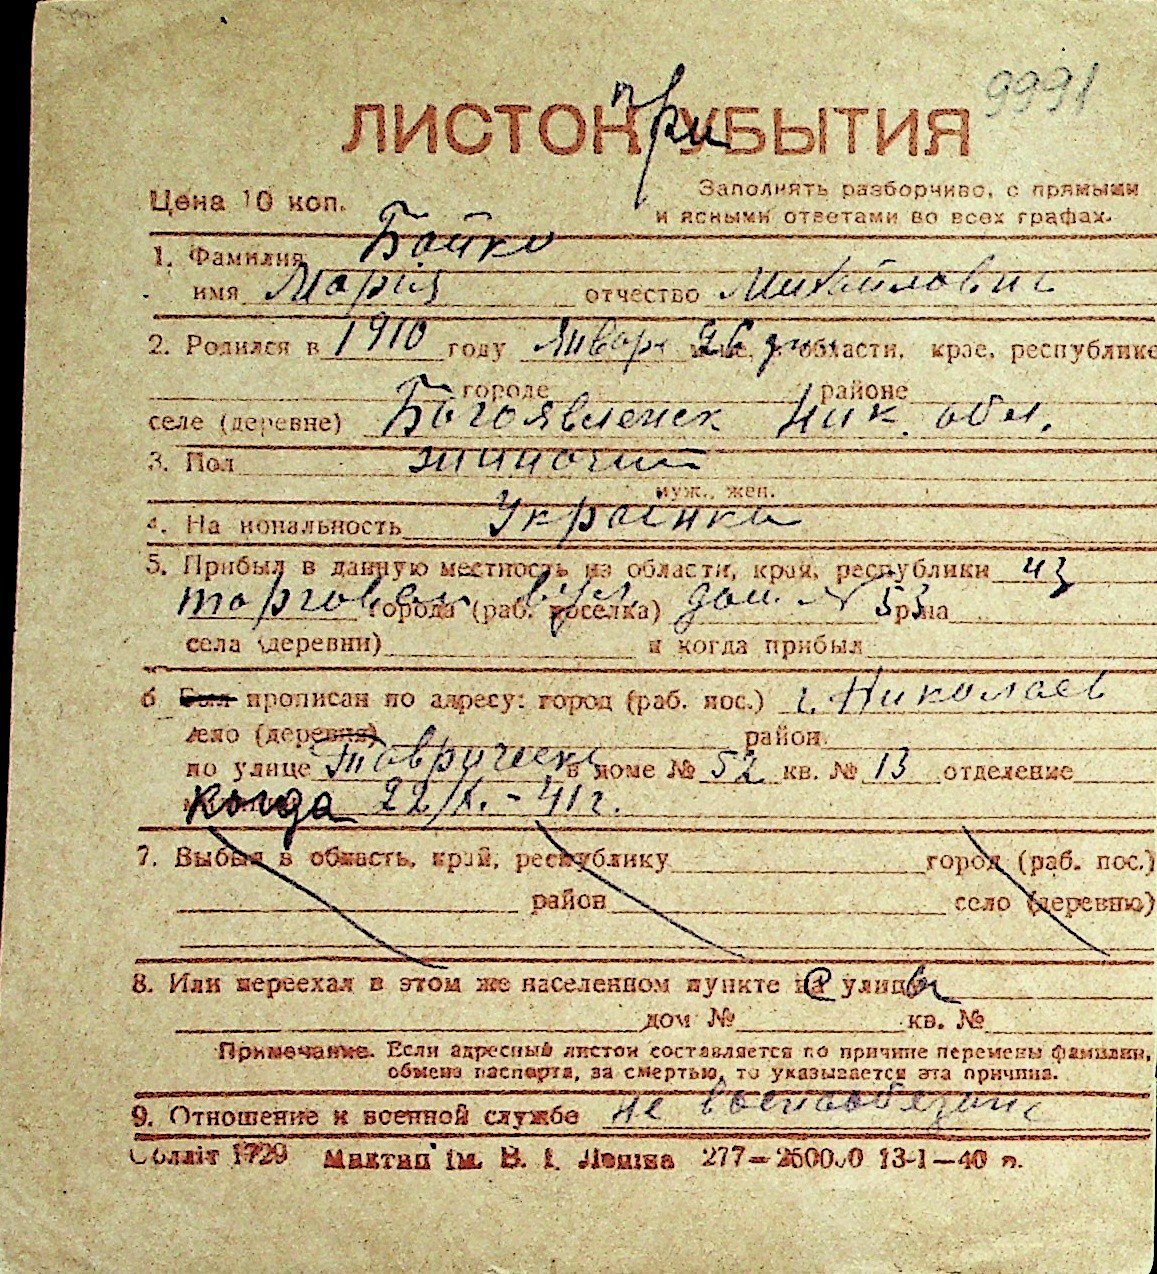 9991
ЛИСТОК при УБЫТИЯ
Цена 10 коп.
Заполнять разборчиво, с прямыми
и ясными ответами во всех графах.
1. Фамилия Бойко
имя Марія отчество Михайловис
2. Родился в 1910 году Январе 26 дни области, крае, республике
городе районе
селе (деревне) Богоявленск Ник. обл.
3. Пол жиночий
муж., жен.
4. На иональность Украинка
5. Прибыл в данную местность из области, края, республики из
торговая вул. города (раб. поселка) дом № 53 р-на
села (деревни) и когда прибыл
6 Был прописан по адресу: город (раб. пос.) г. Николаев
село (деревня) район
по улице Таврическ в доме № 52 кв. № 13 отделение
когда 22/X.-41 г.
7. Выбыл в область, край, республику город (раб. пос.)
район село (деревню)
8. Или переехал в этом же населенном пункте с улицы
дом № кв. №
Примечание. Если адресный листок составляется по причине перемены фамилии,
обмена паспорта, за смертью, то указывается эта причина.
9. Отношение к военной службе не военнообезанс
Обллiт 1729 Миктип ім. В. І. Леніна 277—250000 13-1—40 р.